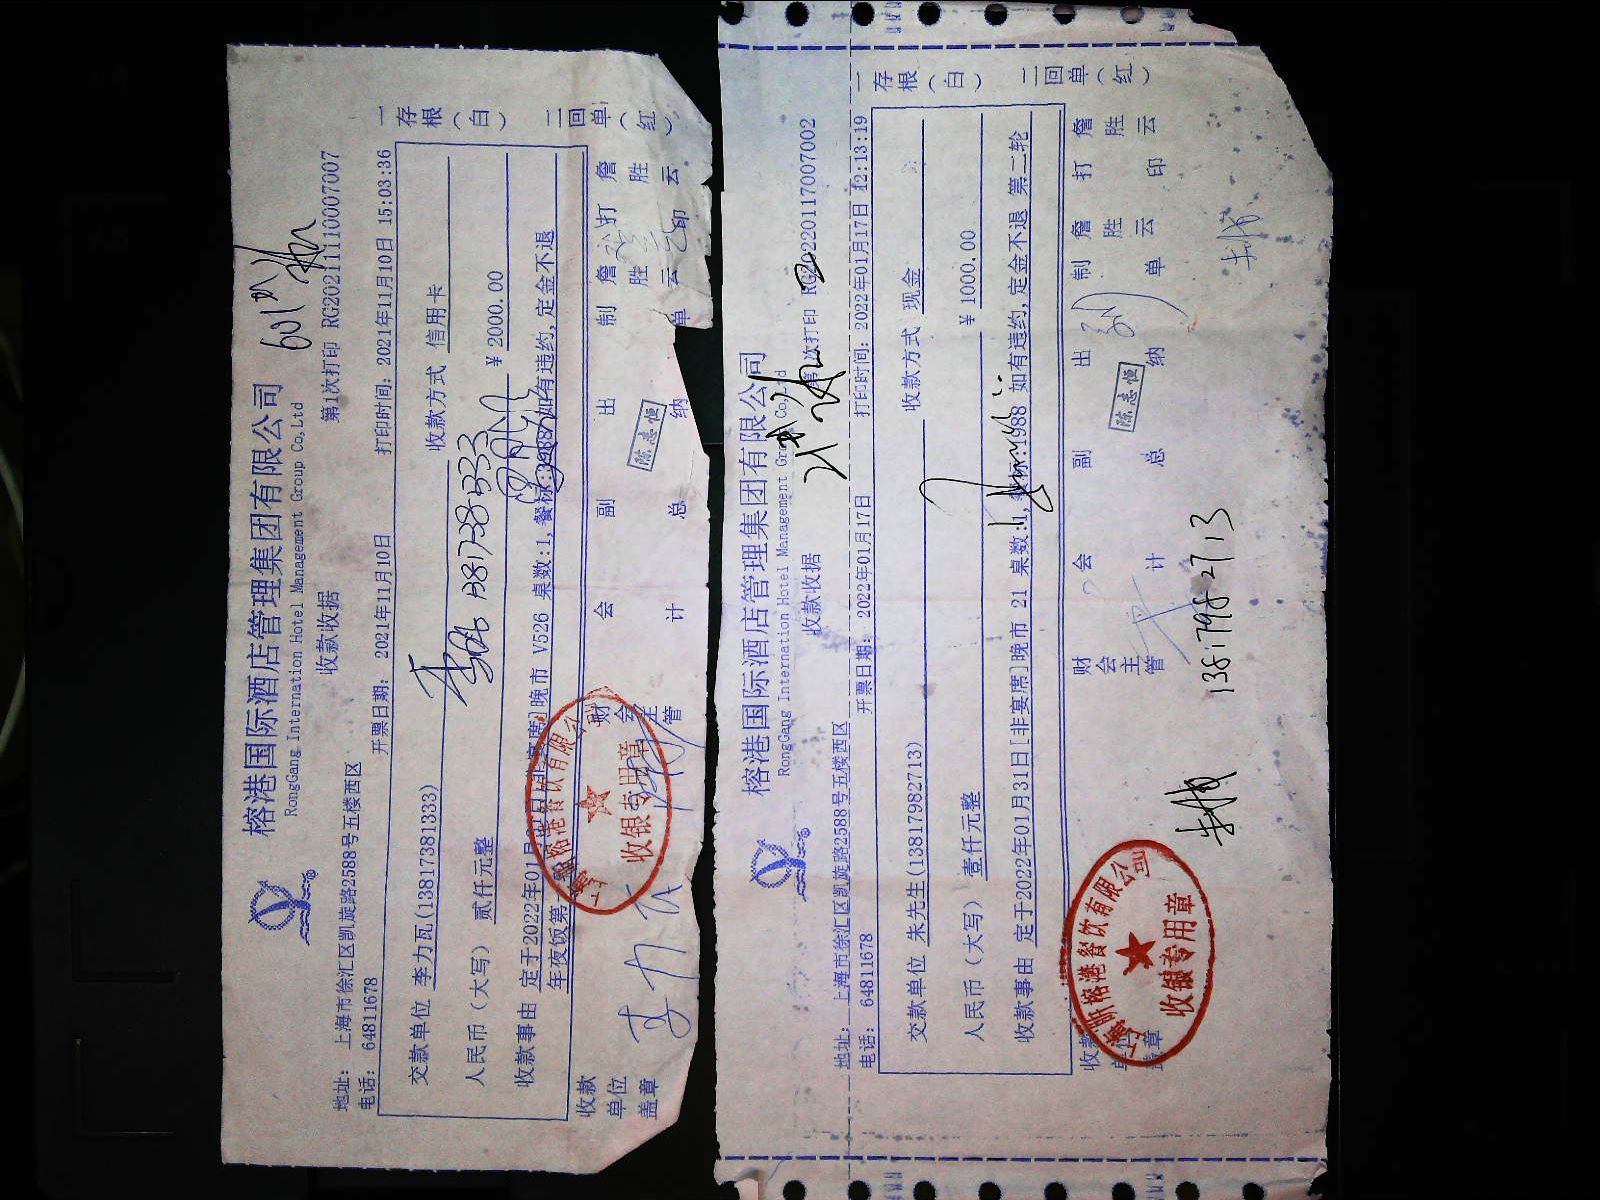 榕港国际酒店管理集团有限公司
RongGang International Hotel Management Group Co,Ltd
收款收据
第1次打印 RG20211110007007
地址: 上海市徐汇区凯旋路2588号五楼西区
电话: 64811678
开票日期: 2021年11月10日
打印时间: 2021年11月10日 15:03:36
交款单位 李力瓦(13817381333)
收款方式 信用卡
13817381333
人民币（大写） 贰仟元整
¥ 2000.00
收款事由 定于2022年01月 晚市 V526 桌数:1, 餐标:3988 如有违约,定金不退
年夜饭第一
收款单位盖章
财会主管
会计
副总
出纳
制单
詹胜云
打印
詹胜云
一存根（白）
二回单（红）
陈志恒
收银专用章
李力瓦
榕港国际酒店管理集团有限公司
RongGang International Hotel Management Group Co,Ltd
收款收据
第1次打印 RG20220117007002
地址: 上海市徐汇区凯旋路2588号五楼西区
电话: 64811678
开票日期: 2022年01月17日
打印时间: 2022年01月17日 12:13:19
交款单位 朱先生(13817982713)
收款方式 现金
人民币（大写） 壹仟元整
¥ 1000.00
收款事由 定于2022年01月31日[非宴席]晚市 21 桌数:1, 餐标:1988 如有违约,定金不退 第二轮
收款单位盖章
财会主管
会计
副总
出纳
制单
詹胜云
打印
詹胜云
一存根（白）
二回单（红）
陈志恒
上海昕榕港餐饮有限公司
收银专用章
13817982713